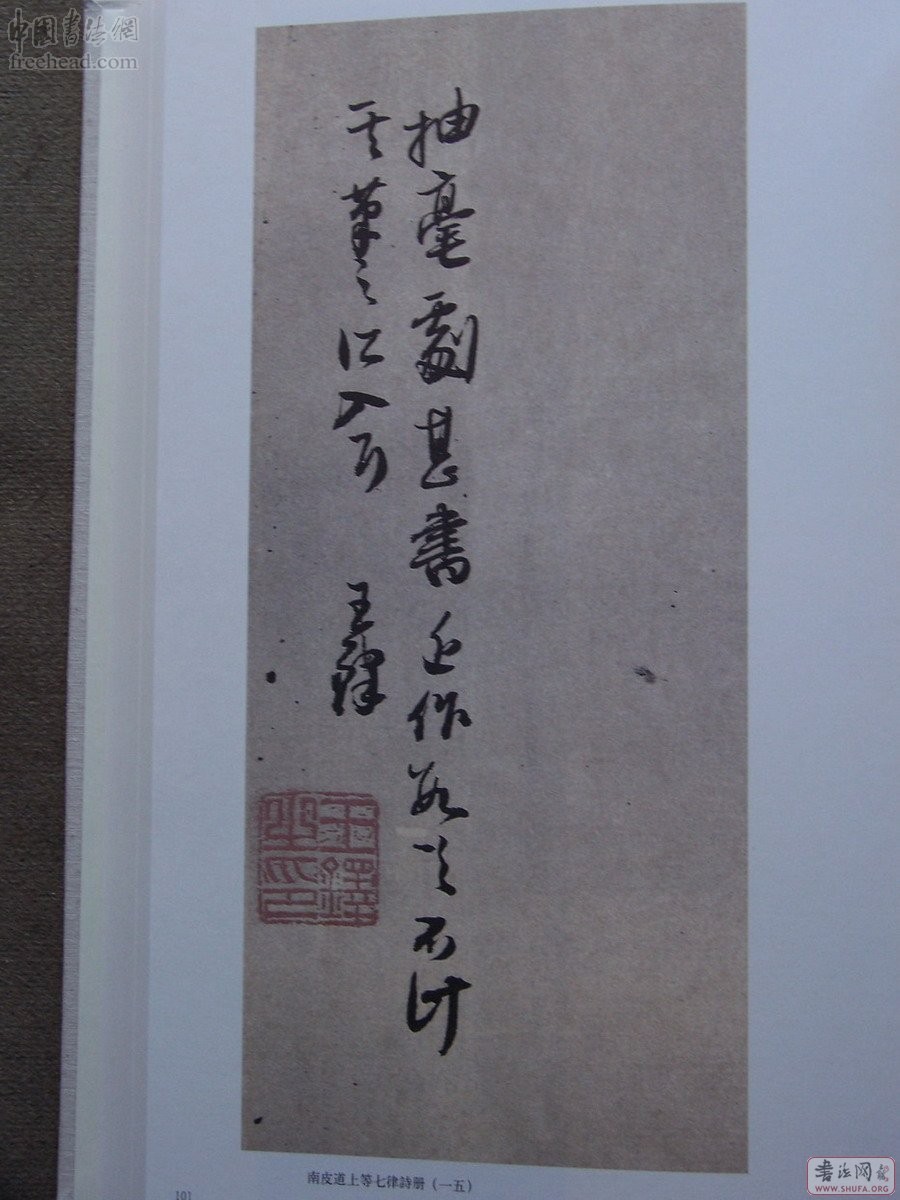 中国书法網
freehead.com
抽毫劇甚書近作數不計
其筆之入 王鐸
王鐸之印
南皮道上等七律詩册（一五）
101
書法网
WWW.SHUFA.ORG